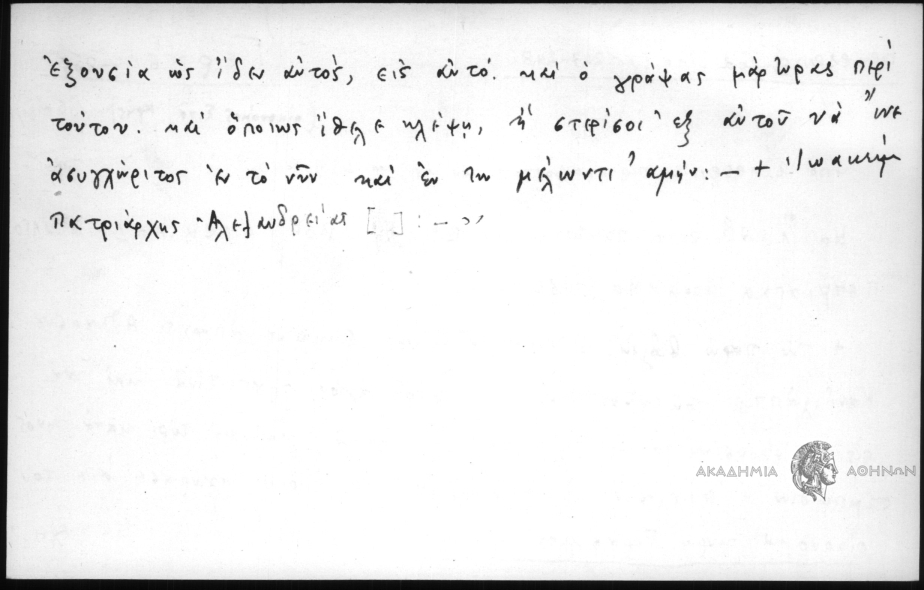 ἐξουσία ὡς ἴδεν αὐτὸς, εις αὐτό. καί ὁ γράψας μάρτυρας περί
τούτου. καί ὁποιως ἴθελε κλέψῃ, ἤ στερίσοι ἐξ αὐτοῦ νά ἦνε
ἀσυγχώριτος ἐν τὸ νῦν καί ἐν τω μέλωντι ἀμήν: — + Ἰωακείμ
Πατριάρχης Ἀλεξανδρείας [ ] : —
ΑΚΑΔΗΜΙΑ ΑΘΗΝΩΝ